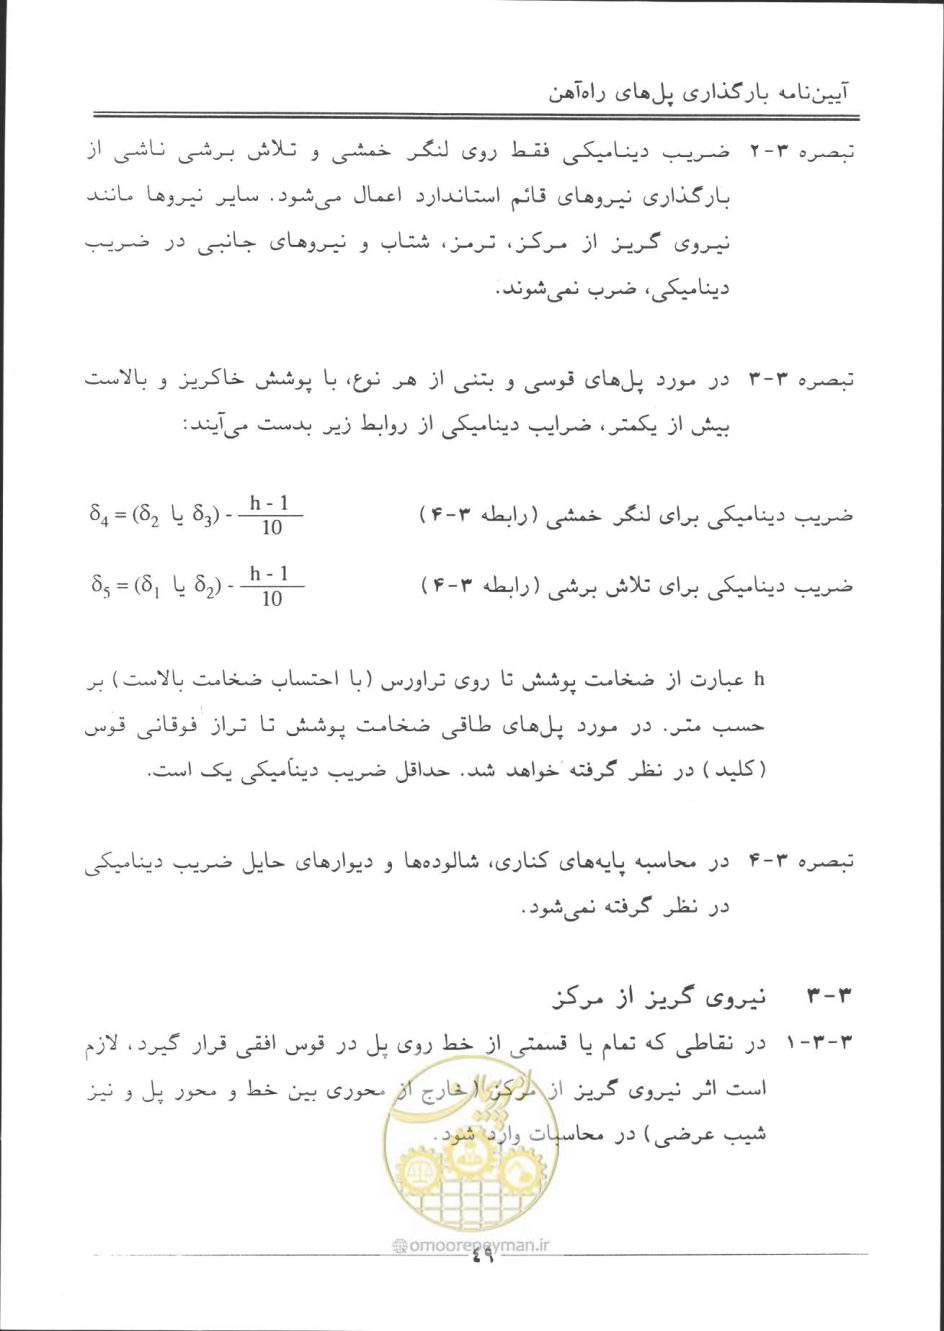 آیین‌نامه بارگذاری پل‌های راه‌آهن
تبصره ۳-۲ ضریب دینامیکی فقط روی لنگر خمشی و تلاش برشی ناشی از
بارگذاری نیروهای قائم استاندارد اعمال می‌شود. سایر نیروها مانند
نیروی گریز از مرکز، ترمز، شتاب و نیروهای جانبی در ضریب
دینامیکی، ضرب نمی‌شوند.
تبصره ۳-۳ در مورد پل‌های قوسی و بتنی از هر نوع، با پوشش خاکریز و بالاست
بیش از یکمتر، ضرایب دینامیکی از روابط زیر بدست می‌آیند:
ضریب دینامیکی برای لنگر خمشی (رابطه ۳-۴) δ4 = (δ2 یا δ3) - (h - 1)/10
ضریب دینامیکی برای تلاش برشی (رابطه ۳-۴) δ5 = (δ1 یا δ2) - (h - 1)/10
h عبارت از ضخامت پوشش تا روی تراورس (با احتساب ضخامت بالاست) بر
حسب متر. در مورد پل‌های طاقی ضخامت پوشش تا تراز فوقانی قوس
(کلید) در نظر گرفته خواهد شد. حداقل ضریب دینامیکی یک است.
تبصره ۳-۴ در محاسبه پایه‌های کناری، شالوده‌ها و دیوارهای حایل ضریب دینامیکی
در نظر گرفته نمی‌شود.
۳-۳ نیروی گریز از مرکز
۳-۳-۱ در نقاطی که تمام یا قسمتی از خط روی پل در قوس افقی قرار گیرد، لازم
است اثر نیروی گریز از مرکز (خارج از محوری بین خط و محور پل و نیز
شیب عرضی) در محاسبات وارد شود.
امور پیمان
@omoorepeyman.ir
٤٩